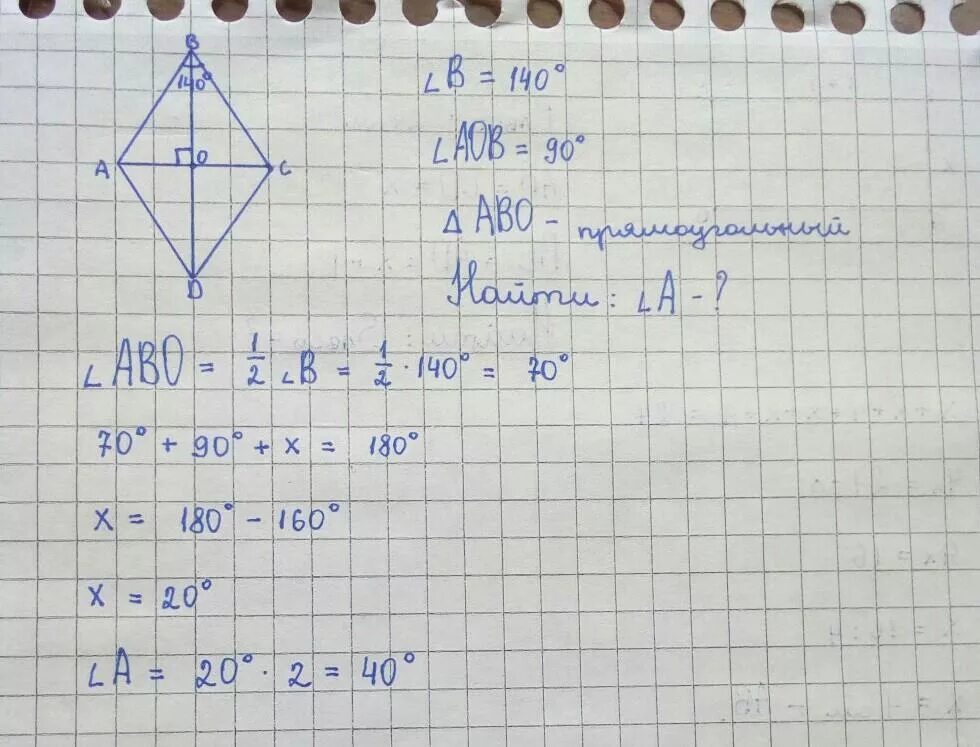 B
140°
A
O
C
D
∠B = 140°
∠AOB = 90°
Δ ABO - прямоугольный
Найти: ∠A - ?
∠ABO = 1/2 ∠B = 1/2 · 140° = 70°
70° + 90° + x = 180°
x = 180° - 160°
x = 20°
∠A = 20° · 2 = 40°